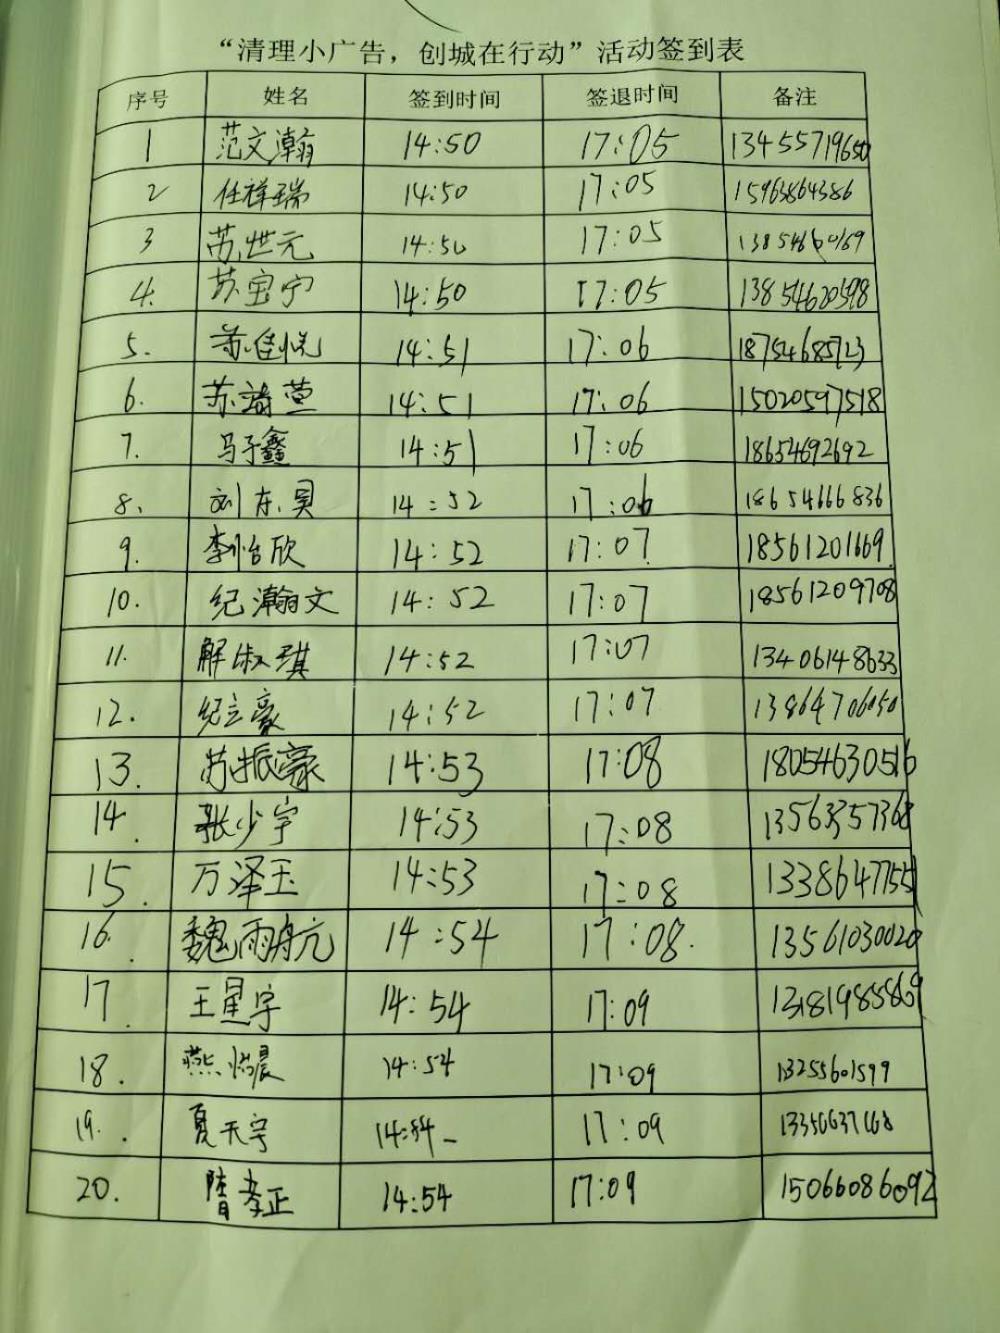 “清理小广告，创城在行动”活动签到表
序号 姓名 签到时间 签退时间 备注
1 范文瀚 14:50 17:05 13455719650
2 任祥瑞 14:50 17:05 15963864386
3 苏世元 14:50 17:05
4. 苏宝宁 14:50 17:05 13854620598
5. 苏佳悦 14:51 17:06 18754685723
6. 苏靖萱 14:51 17:06 15020597518
7. 马子鑫 14:51 17:06 18654692692
8. 刘东昊 14:52 17:06 18654666836
9. 李怡欣 14:52 17:07 18561201669
10. 纪瀚文 14:52 17:07 18561209708
11. 解淑琪 14:52 17:07 13406148633
12. 纪立豪 14:52 17:07 13864706050
13. 苏振豪 14:53 17:08 18054630516
14. 张少宇 14:53 17:08 13563357368
15. 万泽玉 14:53 17:08
16. 魏雨航 14:54 17:08. 13561030020
17 王星宇 14:54 17:09
18. 燕 晨 14:54 17:09 13255601599
19. 夏天宇 14:54 17:09
20. 隋孝正 14:54 17:09 15066086092